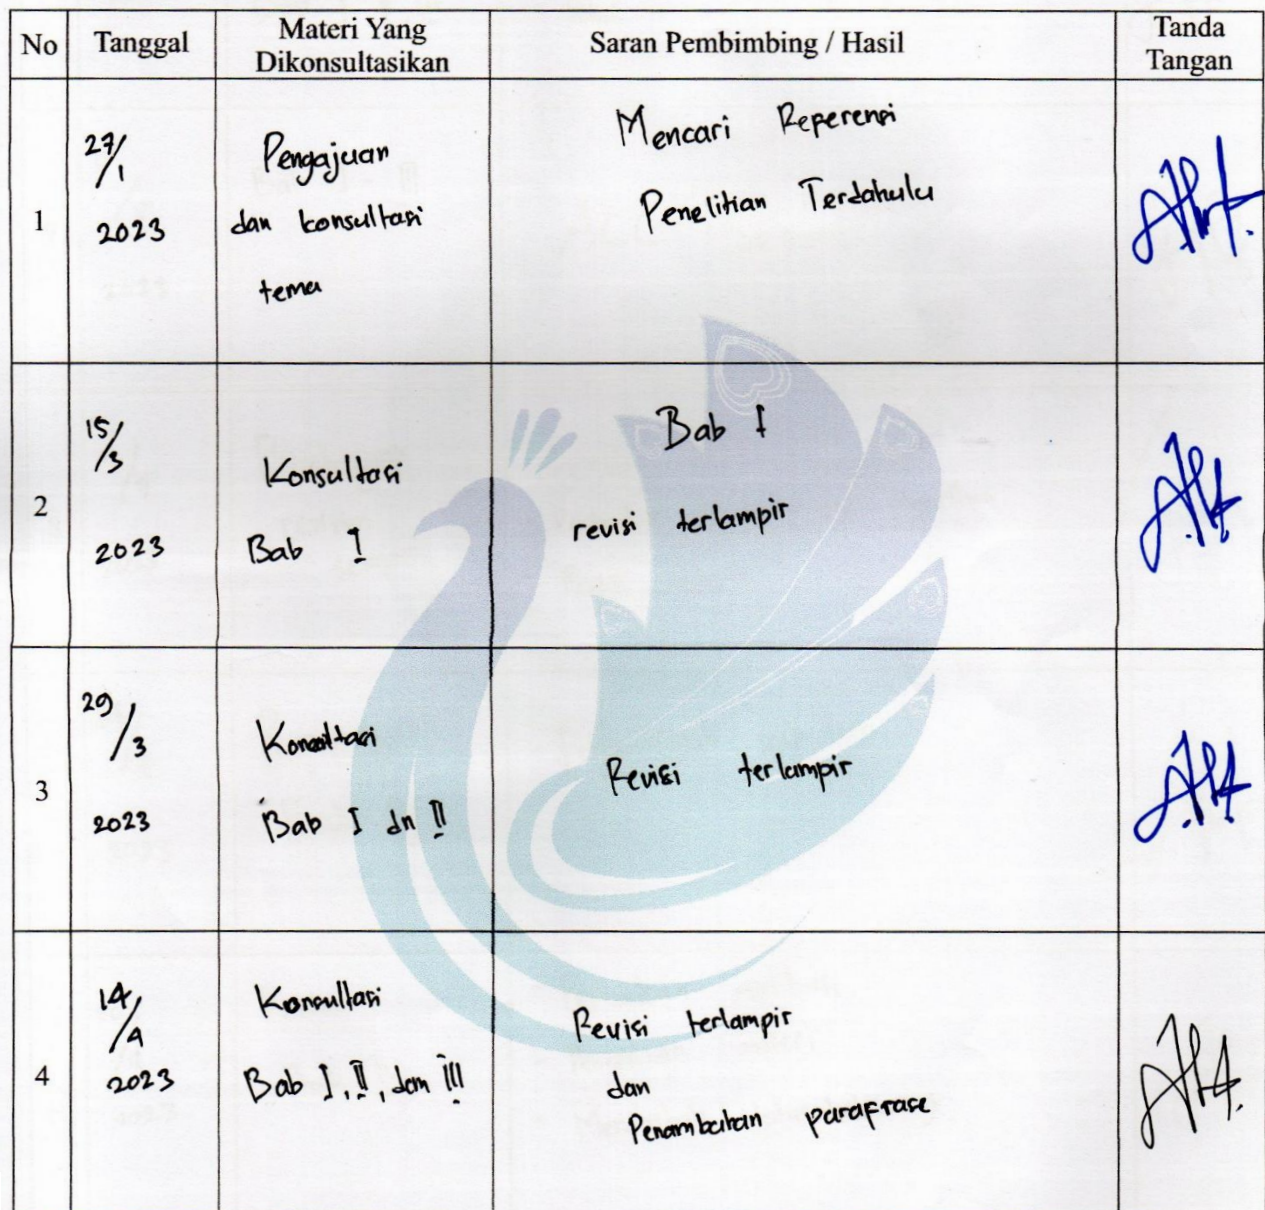 No Tanggal Materi Yang Dikonsultasikan Saran Pembimbing / Hasil Tanda Tangan
27/1
2023
1
Pengajuan
dan konsultasi
tema
Mencari Referensi
Penelitian Terdahulu
15/3
2023
2
Konsultasi
Bab I
Bab I
revisi terlampir
29/3
2023
3
Konsultasi
Bab I dn II
Revisi terlampir
14/4
2023
4
Konsultasi
Bab I, II, dan III
Revisi terlampir
dan
Penambahan parafrase